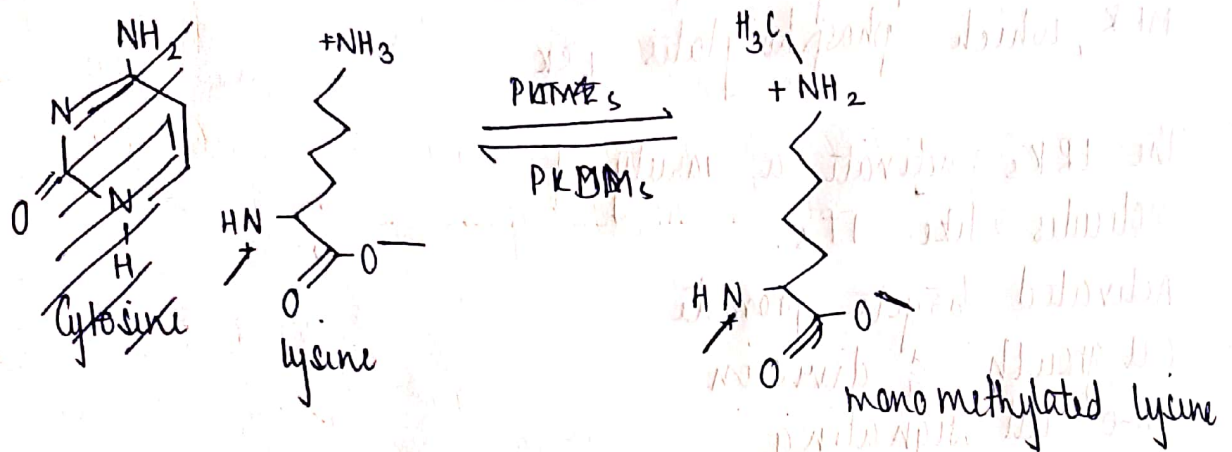 NH2
N
O
N
H
Cytosine
+NH3
HN
O
O
lysine
PKMTs
PKDMs
H3C
+ NH2
HN
O
O
mono methylated lysine